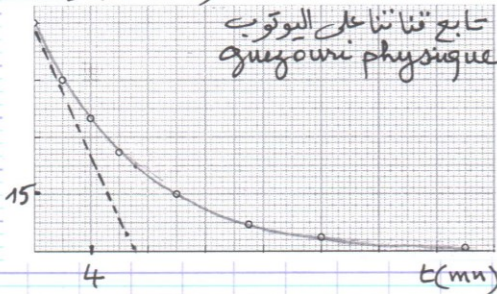 تابع قناتنا على اليوتوب
guezouri physique
15
4
t(mn)